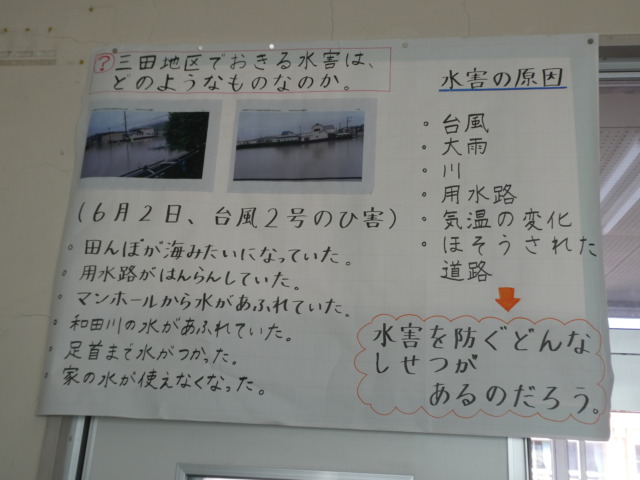 ? 三田地区でおきる水害は、
どのようなものなのか。
(6月2日、台風2号のひ害)
・田んぼが海みたいになっていた。
・用水路がはんらんしていた。
・マンホールから水があふれていた。
・和田川の水があふれていた。
・足首まで水がつかった。
・家の水が使えなくなった。
水害の原因
・台風
・大雨
・川
・用水路
・気温の変化
・ほそうされた
道路
水害を防ぐどんな
しせつが
あるのだろう。